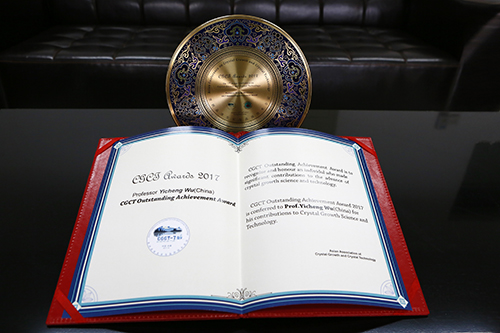 CGCT Awards 2017
CGCT Awards 2017
Professor Yicheng Wu(China)
CGCT Outstanding Achievement Award
CGCT-7
CGCT Outstanding Achievement Award is to
recognize and honour an individual who made
significant contributions to the advance of
crystal growth science and technology.
CGCT Outstanding Achievement Award 2017
is conferred to Prof.Yicheng Wu(China) for
his contributions to Crystal Growth Science and
Technology.
Asian Association of
Crystal Growth and Crystal Technology